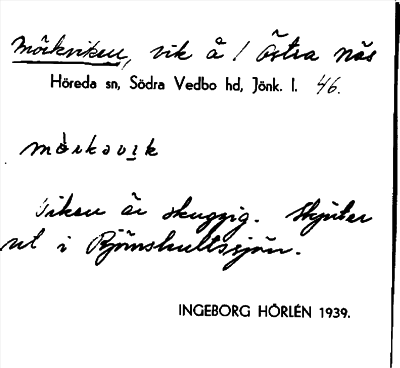 Mörkviken, vik å / Östra Näs
Höreda sn, Södra Vedbo hd, Jönk. l. 46.
mörkavik
Viken är skuggig. Skjuter
ut i Björnshultssjön.
INGEBORG HÖRLÉN 1939.